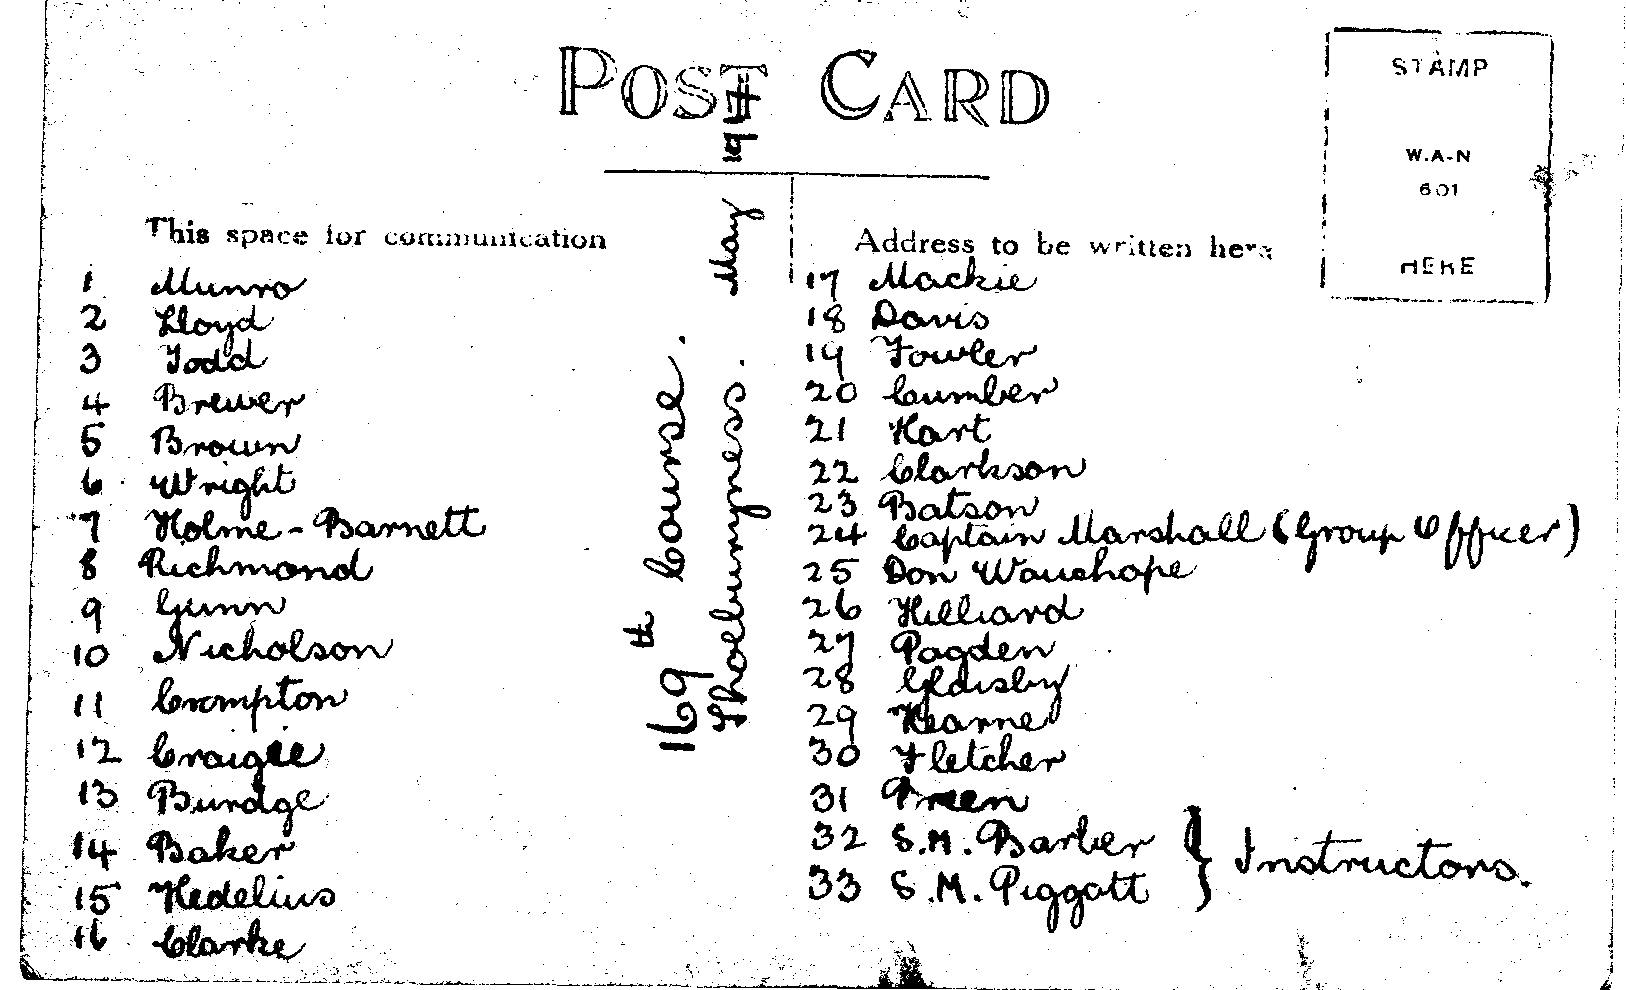 POST CARD
STAMP
W.A-N
601
HERE
This space for communication
Address to be written here
1 Munro
2 Lloyd
3 Todd
4 Brewer
5 Brown
6 Wright
7 Holme-Barnett
8 Richmond
9 Gunn
10 Nicholson
11 Crompton
12 Craigie
13 Burdge
14 Baker
15 Hedelius
16 Clarke
169th Course.
Shoeburyness. May
17 Mackie
18 Davis
19 Fowler
20 Cumber
21 Hart
22 Clarkson
23 Batson
24 Captain Marshall (Group Officer)
25 Don Wauchope
26 Hilliard
27 Pagden
28 Glaisby
29 Hearne
30 Fletcher
31
32 S.M. Barber
33 S.M. Piggott
} Instructors.